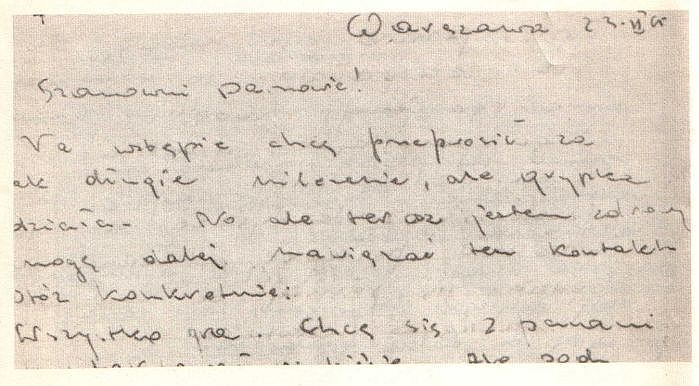 Warszawa 23.
Szanowni panowie!
Na wstępie chcę przeprosić za
ak długie milczenie, ale grypka
działa. No ale teraz jestem zdrowy
mogę dalej nawiązać ten kontakt
otóż konkretnie:
Wszystko gra. Chcę się z panami